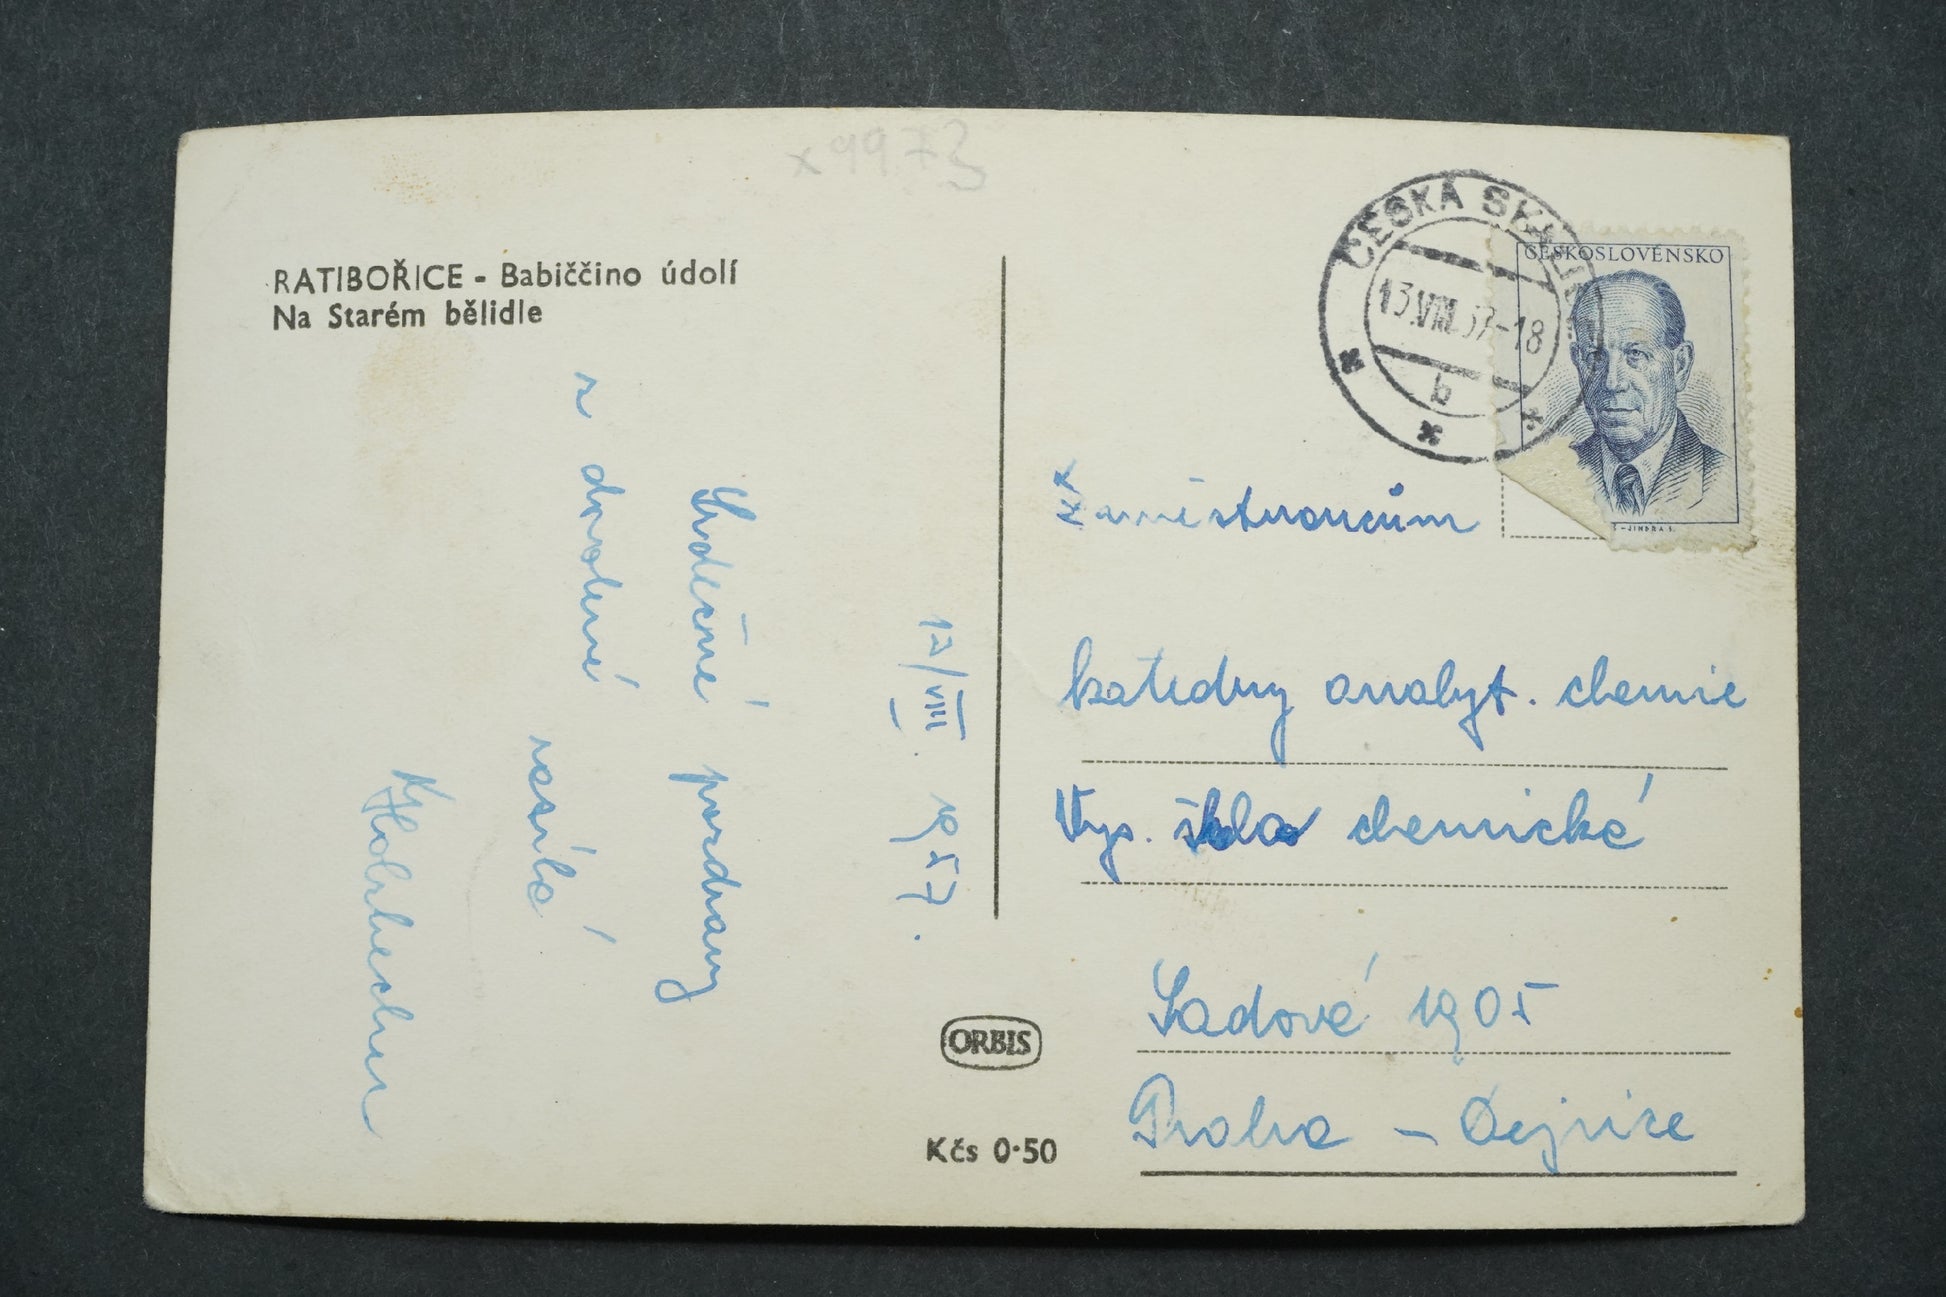 x9973
RATIBOŘICE - Babiččino údolí
Na Starém bělidle
12/VIII. 1957.
Srdečné pozdravy
z dovolené zasílá
ČESKÁ SKALICE
13.VIII.57-18
b
ČESKOSLOVENSKO
-JINDRA S.
Zaměstnancům
katedry analyt. chemie
Vys. škola chemické
Sadová 1905
Praha - Dejvice
ORBIS
Kčs 0·50